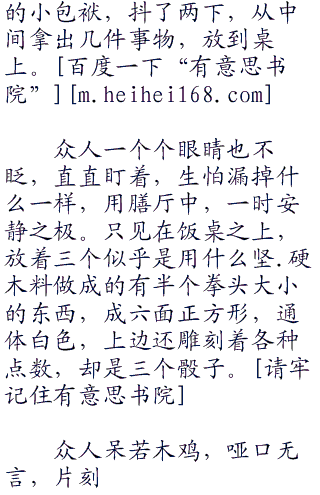 的小包袱，抖了两下，从中
间拿出几件事物，放到桌
上。[百度一下“有意思书
院”][m.heihei168.com]
众人一个个眼睛也不
眨，直直盯着，生怕漏掉什
么一样，用膳厅中，一时安
静之极。只见在饭桌之上，
放着三个似乎是用什么坚.硬
木料做成的有半个拳头大小
的东西，成六面正方形，通
体白色，上边还雕刻着各种
点数，却是三个骰子。[请牢
记住有意思书院]
众人呆若木鸡，哑口无
言，片刻